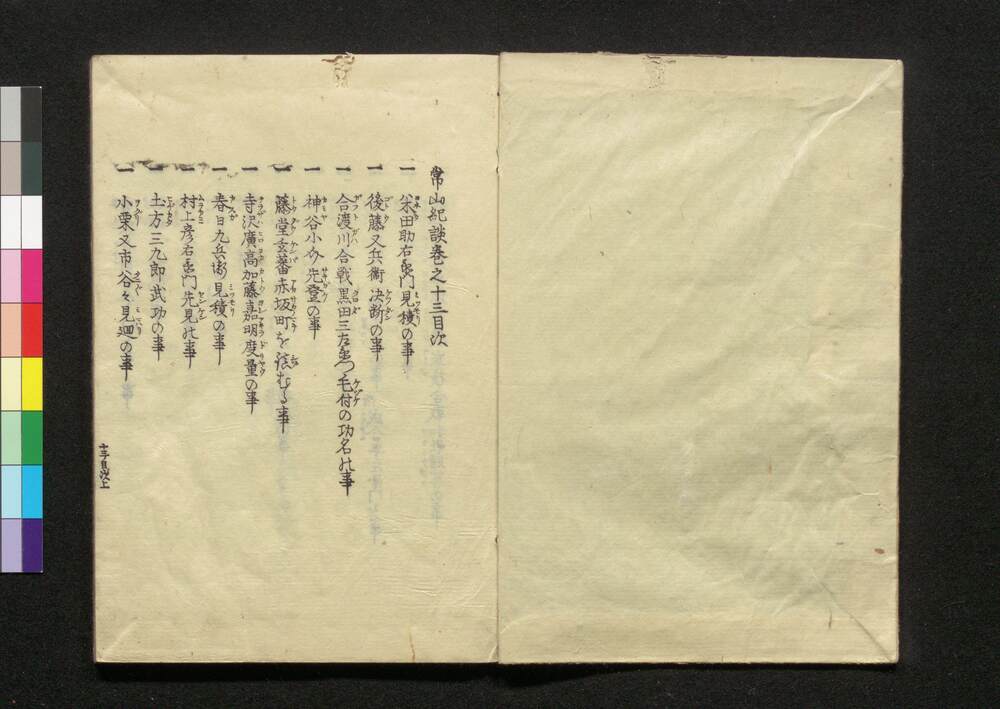 常山紀談巻之十三目次
一 米田助右衛門見積の事
一 後藤又兵衛決断の事
一 合渡川合戦黒田三左衛門毛付の功名の事
一 神谷小介先登の事
一 藤堂玄蕃赤坂町を放むる事
一 寺沢廣高加藤嘉明度量の事
一 春日九兵衛見積の事
一 村上彦右衛門先見の事
一 土方三九郎武功の事
一 小栗又市谷々見廻の事
十三目次上